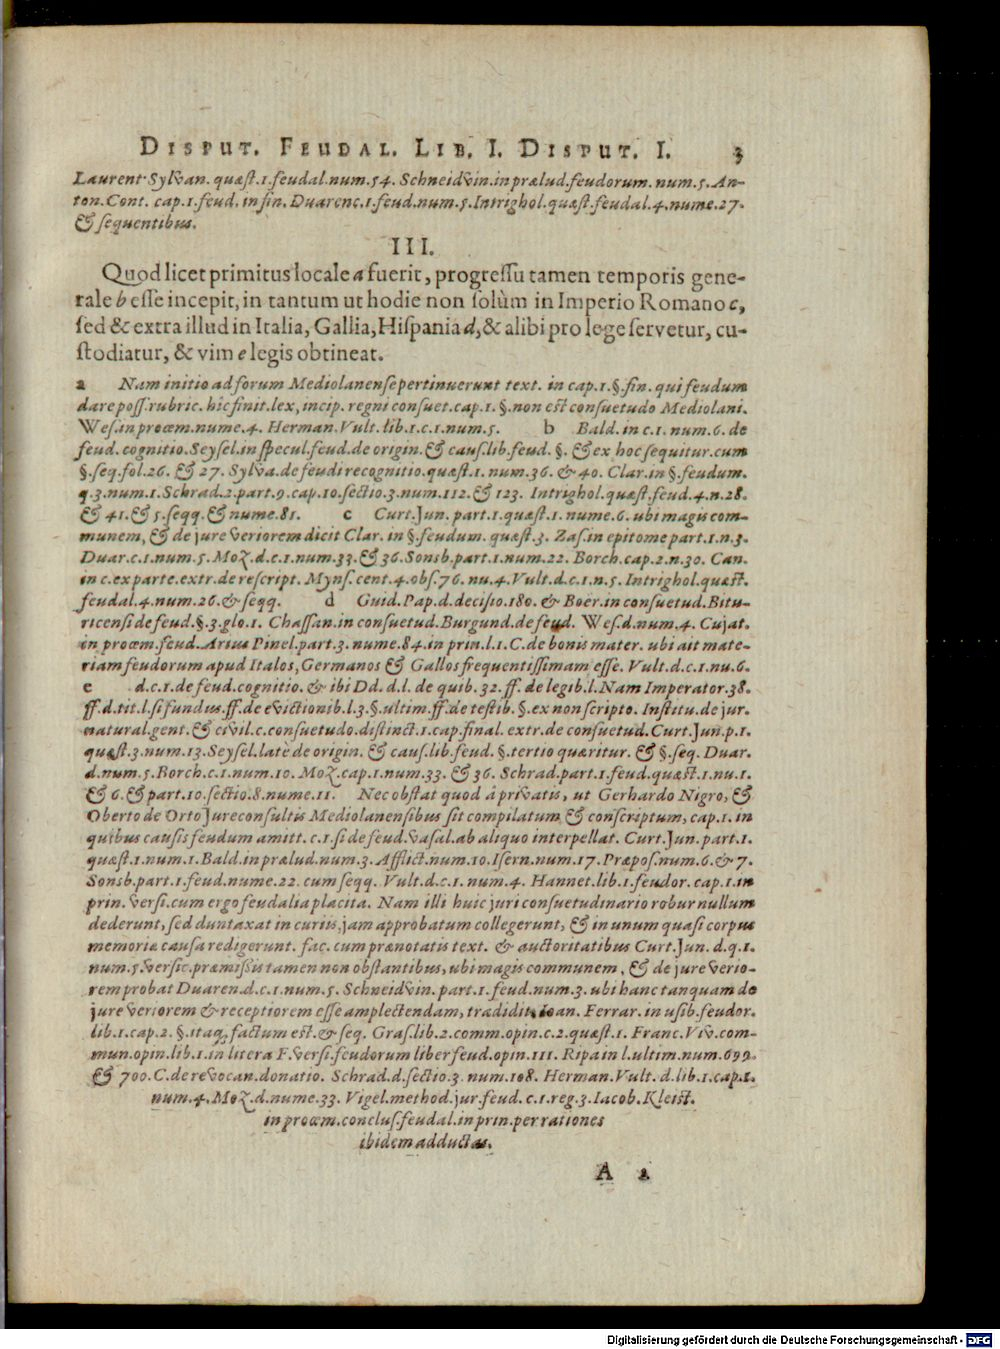 DISPUT. FEUDAL. LIB. I. DISPUT. I. 3
Laurent. Sylvan. quæst. 1. feudal. num. 54. Schneidvin. in prælud. feudorum. num. 5. An-
ton. Cont. cap. 1. feud. in fin. Duarenc. 1. feud. num. 5. Intrighol. quæst. feudal. 4. nume. 27.
& sequentibus.
III.
Quod licet primitus locale a fuerit, progressu tamen temporis gene-
rale b esse incepit, in tantum ut hodie non solùm in Imperio Romano c,
sed & extra illud in Italia, Gallia, Hispania d, & alibi pro lege servetur, cu-
stodiatur, & vim e legis obtineat.
a Nam initio ad forum Mediolanense pertinuerunt text. in cap. 1. §. fin. qui feudum
dare poss. rubric. hic finit. lex, incip. regni consuet. cap. 1. §. non est consuetudo Mediolani.
Wes. in proœm. nume. 4. Herman. Vult. lib. 1. c. 1. num. 5. b Bald. in c. 1. num. 6. de
feud. cognitio. Seysel. in specul. feud. de origin. & caus. lib. feud. §. & ex hoc sequitur. cum
§. seq. fol. 26. & 27. Sylva. de feudi recognitio. quæst. 1. num. 36. & 40. Clar. in §. feudum.
q. 3. num. 1. Schrad. 2. part. 9. cap. 10. sectio. 3. num. 112. & 123. Intrighol. quæst. feud. 4. n. 28.
& 41. & 5. seqq. & nume. 81. c Curt. Jun. part. 1. quæst. 1. nume. 6. ubi magis com-
munem, & de jure veriorem dicit Clar. in §. feudum. quæst. 3. Zas. in epitome part. 1. n. 3.
Duar. c. 1. num. 5. Moz. d. c. 1. num. 33. & 36. Sonsb. part. 1. num. 22. Borch. cap. 2. n. 30. Can.
in c. ex parte. extr. de rescript. Myns. cent. 4. obs. 76. nu. 4. Vult. d. c. 1. n. 5. Intrighol. quæst.
feudal. 4. num. 26. & seqq. d Guid. Pap. d. decisio. 180. & Boer. in consuetud. Bitu-
ricensi de feud. §. 3. glo. 1. Chassan. in consuetud. Burgund. de feud. Wes. d. num. 4. Cujat.
in proœm. feud. Arius Pinel. part. 3. nume. 84. in prin. l. 1. C. de bonis mater. ubi ait mate-
riam feudorum apud Italos, Germanos & Gallos frequentissimam esse. Vult. d. c. 1. nu. 6.
e d. c. 1. de feud. cognitio. & ibi Dd. d. l. de quib. 32. ff. de legib. l. Nam Imperator. 38.
ff. d. tit. l. si fundus. ff. de evictionib. l. 3. §. ultim. ff. de testib. §. ex non scripto. Institu. de jur.
natural. gent. & civil. c. consuetudo. distinct. 1. cap. final. extr. de consuetud. Curt. Jun. p. 1.
quæst. 3. num. 13. Seysel. latè de origin. & caus. lib. feud. §. tertio quæritur. & §. seq. Duar.
d. num. 5. Borch. c. 1. num. 10. Moz. cap. 1. num. 33. & 36. Schrad. part. 1. feud. quæst. 1. nu. 1.
& 6. & part. 10. sectio. 8. nume. 11. Nec obstat quod à privatis, ut Gerhardo Nigro, &
Oberto de Orto Jureconsultis Mediolanensibus sit compilatum & conscriptum, cap. 1. in
quibus causis feudum amitt. c. 1. si de feud. vasal. ab aliquo interpellat. Curt. Jun. part. 1.
quæst. 1. num. 1. Bald. in prælud. num. 3. Afflict. num. 10. Isern. num. 17. Præpos. num. 6. & 7.
Sonsb. part. 1. feud. nume. 22. cum seqq. Vult. d. c. 1. num. 4. Hannet. lib. 1. feudor. cap. 1. in
prin. versi. cum ergo feudalia placita. Nam illi huic juri consuetudinario robur nullum
dederunt, sed duntaxat in curiis, jam approbatum collegerunt, & in unum quasi corpus
memoriæ causa redigerunt. fac. cum prænotatis text. & auctoritatibus Curt. Jun. d. q. 1.
num. 5. versic. præmissis tamen non obstantibus, ubi magis communem, & de jure verio-
rem probat Duaren. d. c. 1. num. 5. Schneidvin. part. 1. feud. num. 3. ubi hanc tanquam de
jure veriorem & receptiorem esse amplectendam, tradidit, Ioan. Ferrar. in usib. feudor.
lib. 1. cap. 2. §. itaq; factum est. & seq. Gras. lib. 2. comm. opin. c. 2. quæst. 1. Franc. Viv. com-
mun. opin. lib. 1. in litera F. versi. feudorum liber feud. opin. 111. Ripa in l. ultim. num. 699.
& 700. C. de revocan. donatio. Schrad. d. sectio. 3. num. 108. Herman. Vult. d. lib. 1. cap. 1.
num. 4. Moz. d. nume. 33. Vigel. method. jur. feud. c. 1. reg. 3. Iacob. Kleist.
in proœm. conclus. feudal. in prin. per rationes
ibidem adductas.
A 2
Digitalisierung gefördert durch die Deutsche Forschungsgemeinschaft - DFG